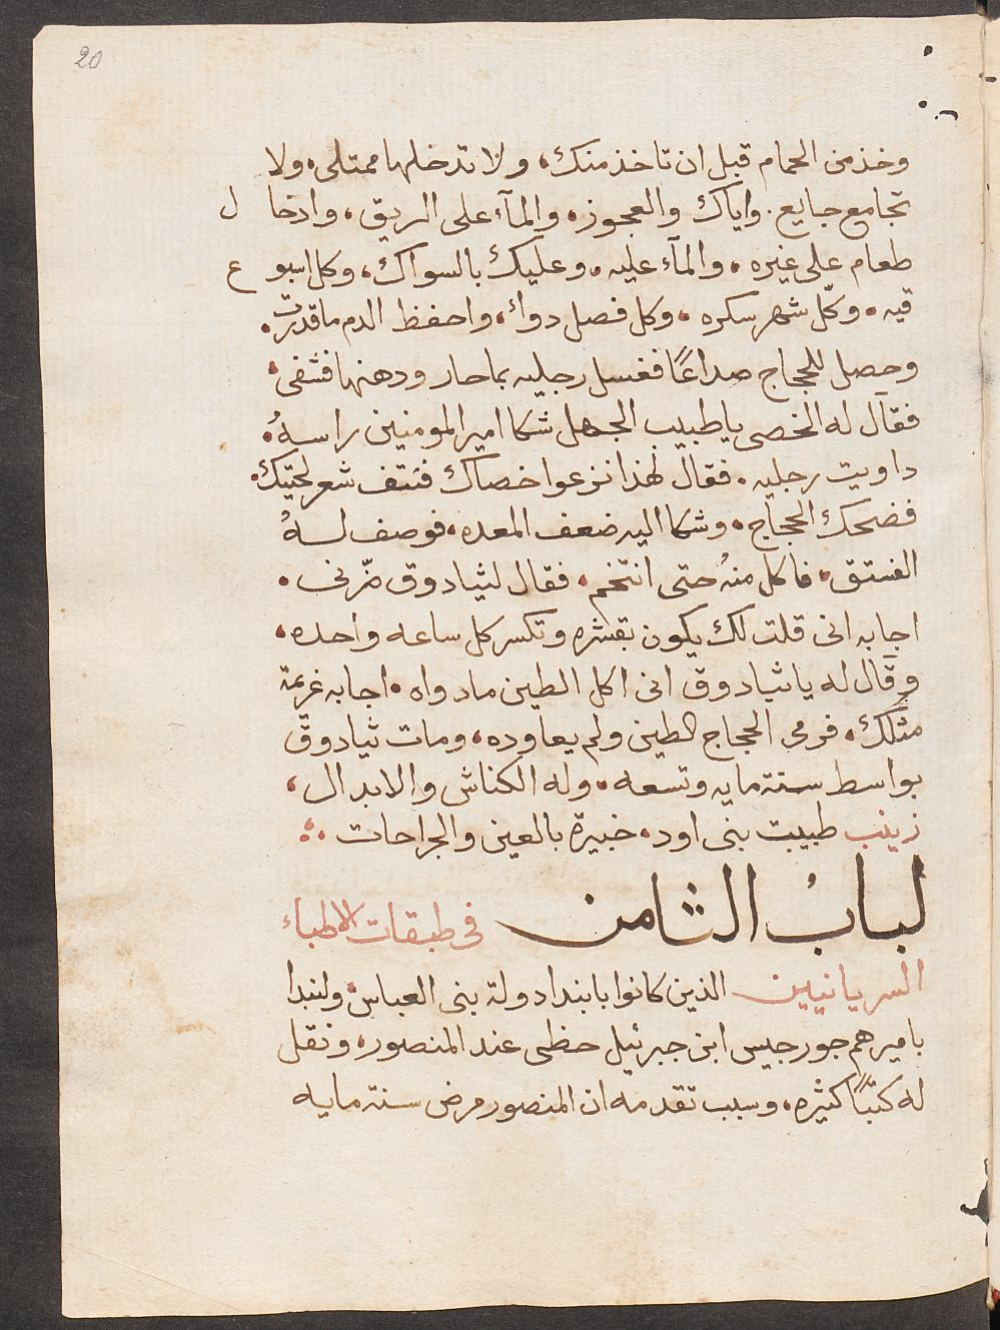 20
وخذ من الحمام قبل ان تاخذ منك، ولا تدخلها ممتلى، ولا
تجامع جايع. واياك والعجوز، والمآء على الريق، وادخال
طعام على غيره، والمآء عليه، وعليك بالسواك، وكل اسبوع
قيه، وكل شهر سكره، وكل فصل دواء، واحفظ الدم ما قدرت.
وحصل للحجاج صداعًا فغسل رجليه بماحار ودهنها فشفى،
فقال له الخصى يا طبيب الجهل شكا امير المومنين راسهُ.
داويت رجليه. فقال لهذا نزعوا خصاك فنتف شعر لحيتك.
فضحك الحجاج، وشكا اليه ضعف المعده، فوصف لهُ
الفستق، فاكل منهُ حتى انتخم، فقال لثيادوق ضرنى.
اجابه انى قلت لك يكون بقشره وتكسر كل ساعه واحده،
وقال له يا ثيادوق انى اكل الطين ما دواه، اجابه غريمة
مثلك، فرمى الحجاج الطين ولم يعاوده، ومات ثيادوق
بواسط سنة مايه وتسعه، وله الكناش والابدال،
زينب طبيبت بنى اود، خبيرة بالعين والجراحات
لبابُ الثامن فى طبقات الاطباء
السريانيين الذين كانوا بابتدا دولة بنى العباس، ولنبدا
باميرهم جورجيس ابن جبرئيل حظى عند المنصور، ونقل
له كتبًا كثيره، وسبب تقدمه ان المنصور مرض سنة مايه